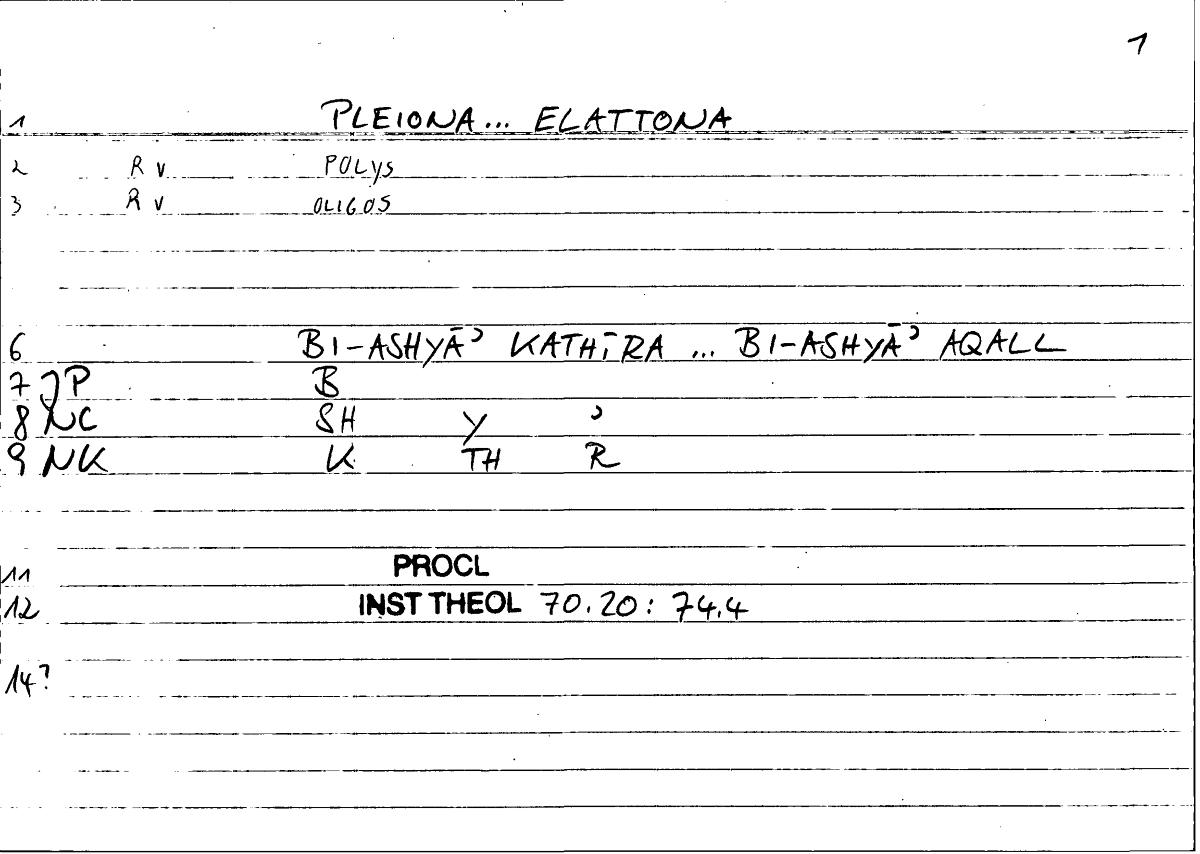 1
1 PLEIONA... ELATTONA
2 R v POLYS
3 R v OLIGOS
6 BI-ASHYĀʾ KATHĪRA ... BI-ASHYĀʾ AQALL
7 JP B
8 NC SH Y ʾ
9 NK K TH R
11 PROCL
12 INST THEOL 70.20: 74.4
14?